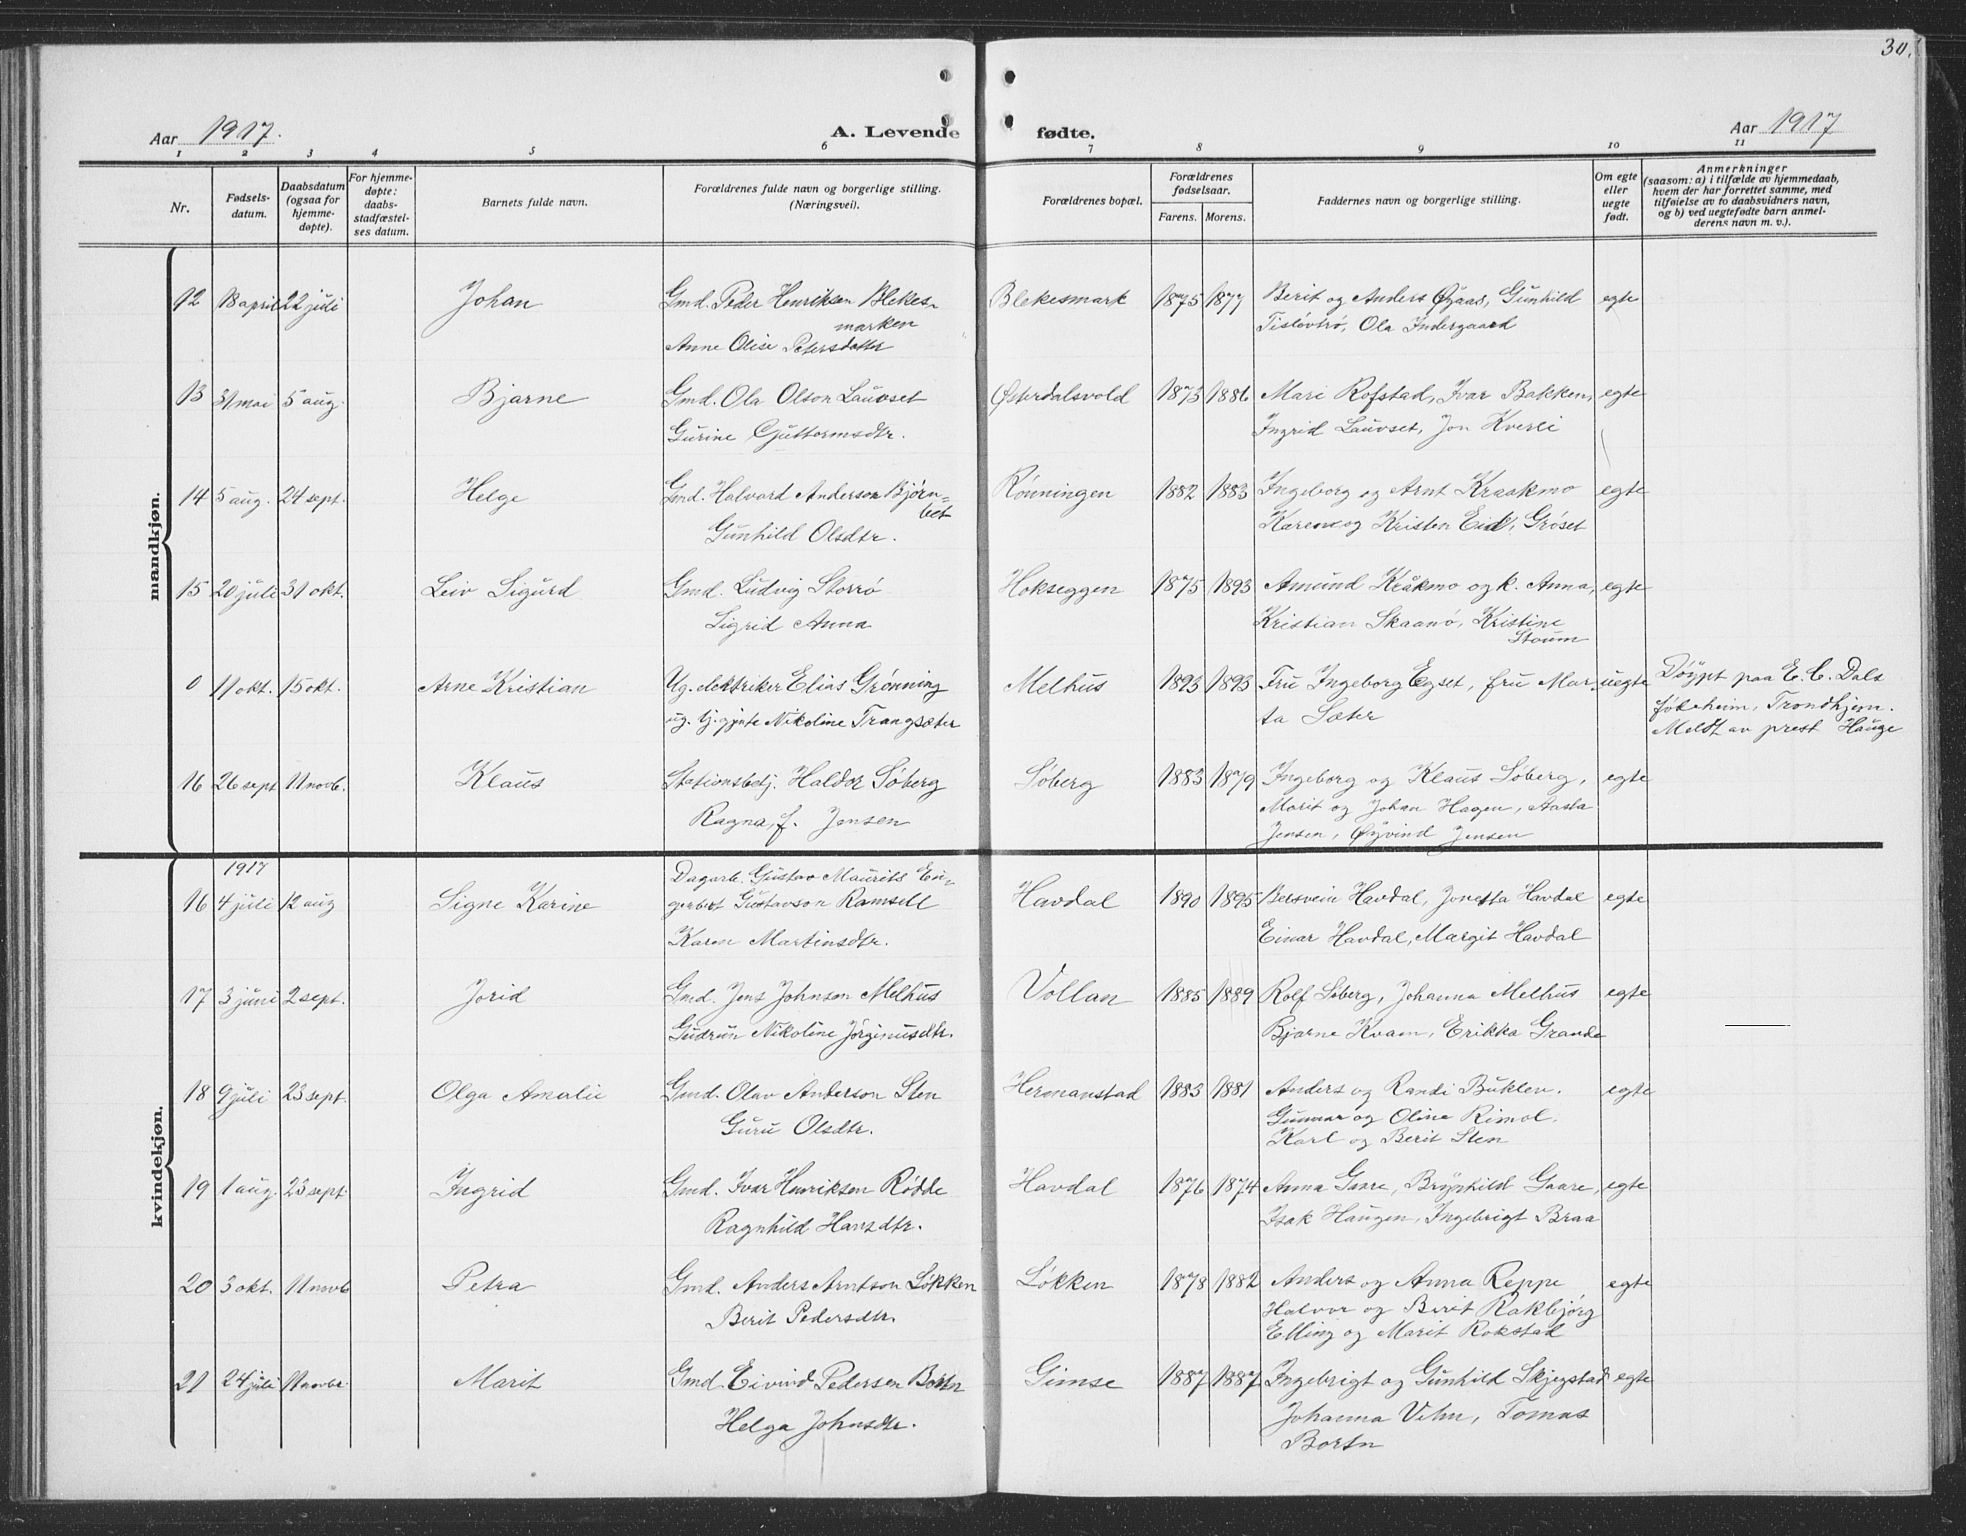 30.
Aar 1917. A. Levende fødte. Aar 1917
1 2 3 4 5 6 7 8 9 10 11
Nr. Fødsels-datum. Daabsdatum (ogsaa for hjemme-døpte). For hjemme-døpte: daabs-stadfæstel-ses datum. Barnets fulde navn. Forældrenes fulde navn og borgerlige stilling. (Næringsvei). Forældrenes bopæl. Forældrenes fødselsaar. Farens. Morens. Faddernes navn og borgerlige stilling. Om egte eller uegte født. Anmerkninger (saasom: a) i tilfælde av hjemmedaab, hvem der har forrettet samme, med tilføielse av to daabsvidners navn, og b) ved uegtefødte barn anmel-derens navn m. v.).
mandkjøn.
12 18 april 22 juli Johan Gmd. Peder Henriksen Blekes- Blekesmark 1875 1877 Berit og Anders Øyaas, Gunhild egte
marken Tisløvtrø, Ola Indergaard
Anne Olise Petersdatter
13 31 mai 5 aug. Bjarne Gmd. Ola Olson Lauvset Østerdalsvold 1873 1886 Mari Rofstad, Ivar Bakken, egte
Gurine Guttormsdtr. Ingrid Lauvset, Jon Kverli
14 5 aug. 24 sept. Helge Gmd. Halvard Anderson Bjørn- Rönningen 1882 1883 Ingeborg og Arnt Kraakmo egte
bet
Gunhild Olsdtr. Karen og Kristen Eid, Grøset
15 20 juli 31 okt. Leiv Sigurd Gmd. Ludvig Storrø Hokseggen 1875 1893 Amund Kråkmo og k. Anna, egte
Sigrid Anna Kristian Skaanø, Kristine
Stoum
0 11 okt. 15 okt. Arne Kristian Ug. elektriker Elias Grønning Melhus 1893 1893 Fru Ingeborg Egset, fru Mar- uegte Döypt paa E. C. Dals
ug. tj.gjente Nikoline Trangsæter ta Sæter føbeheim, Trondhjem.
Meldt av prest Hauge
16 26 sept 11 novb. Klaus Stationsbetj. Haldor Söberg Söberg 1883 1879 Ingeborg og Klaus Söberg, egte
Ragna, f. Jensen Marit og Johan Hagen, Aasta
Jensen, Øyvind Jensen
kvindekjøn.
1917
16 4 juli 12 aug Signe Karine Dagarb. Gustav Maurits En- Havdal 1890 1895 Bersvein Havdal, Jonetta Havdal egte
gerbert Gustavson Ramsell
Karen Martinsdtr. Einar Havdal, Margit Havdal
17 3 juni 2 sept. Jorid Gmd. Jens Johnsen Melhus Vollan 1885 1889 Rolf Söberg, Johanna Melhus egte
Gudrun Nikoline Jørginusdtr. Bjarne Kvam, Erikka Grande
18 9 juli 23 sept. Olga Amalie Gmd. Olav Anderson Sten Hermanstad 1883 1881 Anders og Randi Buklev. egte
Guru Olsdtr. Gunnar og Oline Rimol.
Karl og Berit Sten
19 1 aug. 23 sept. Ingrid Gmd. Ivar Henriksen Rødde Havdal 1876 1874 Anna Gaare, Brynhild Gaare, egte
Ragnhild Hansdtr. Isak Haugen, Ingebrigt Braa
20 3 okt. 11 novb Petra Gmd. Anders Arntson Løkken Løkken 1878 1882 Anders og Anna Reppe egte
Berit Pedersdtr. Halvor og Berit Rakbjørg
Elling og Marit Rokstad
21 24 juli 11 novbr. Marit Gmd. Eivind Pedersen Bortn Gimse 1887 1887 Ingebrigt og Gunhild Skjegstad egte
Helga Johnsdtr. Johanna Vehn, Tomas
Bortn